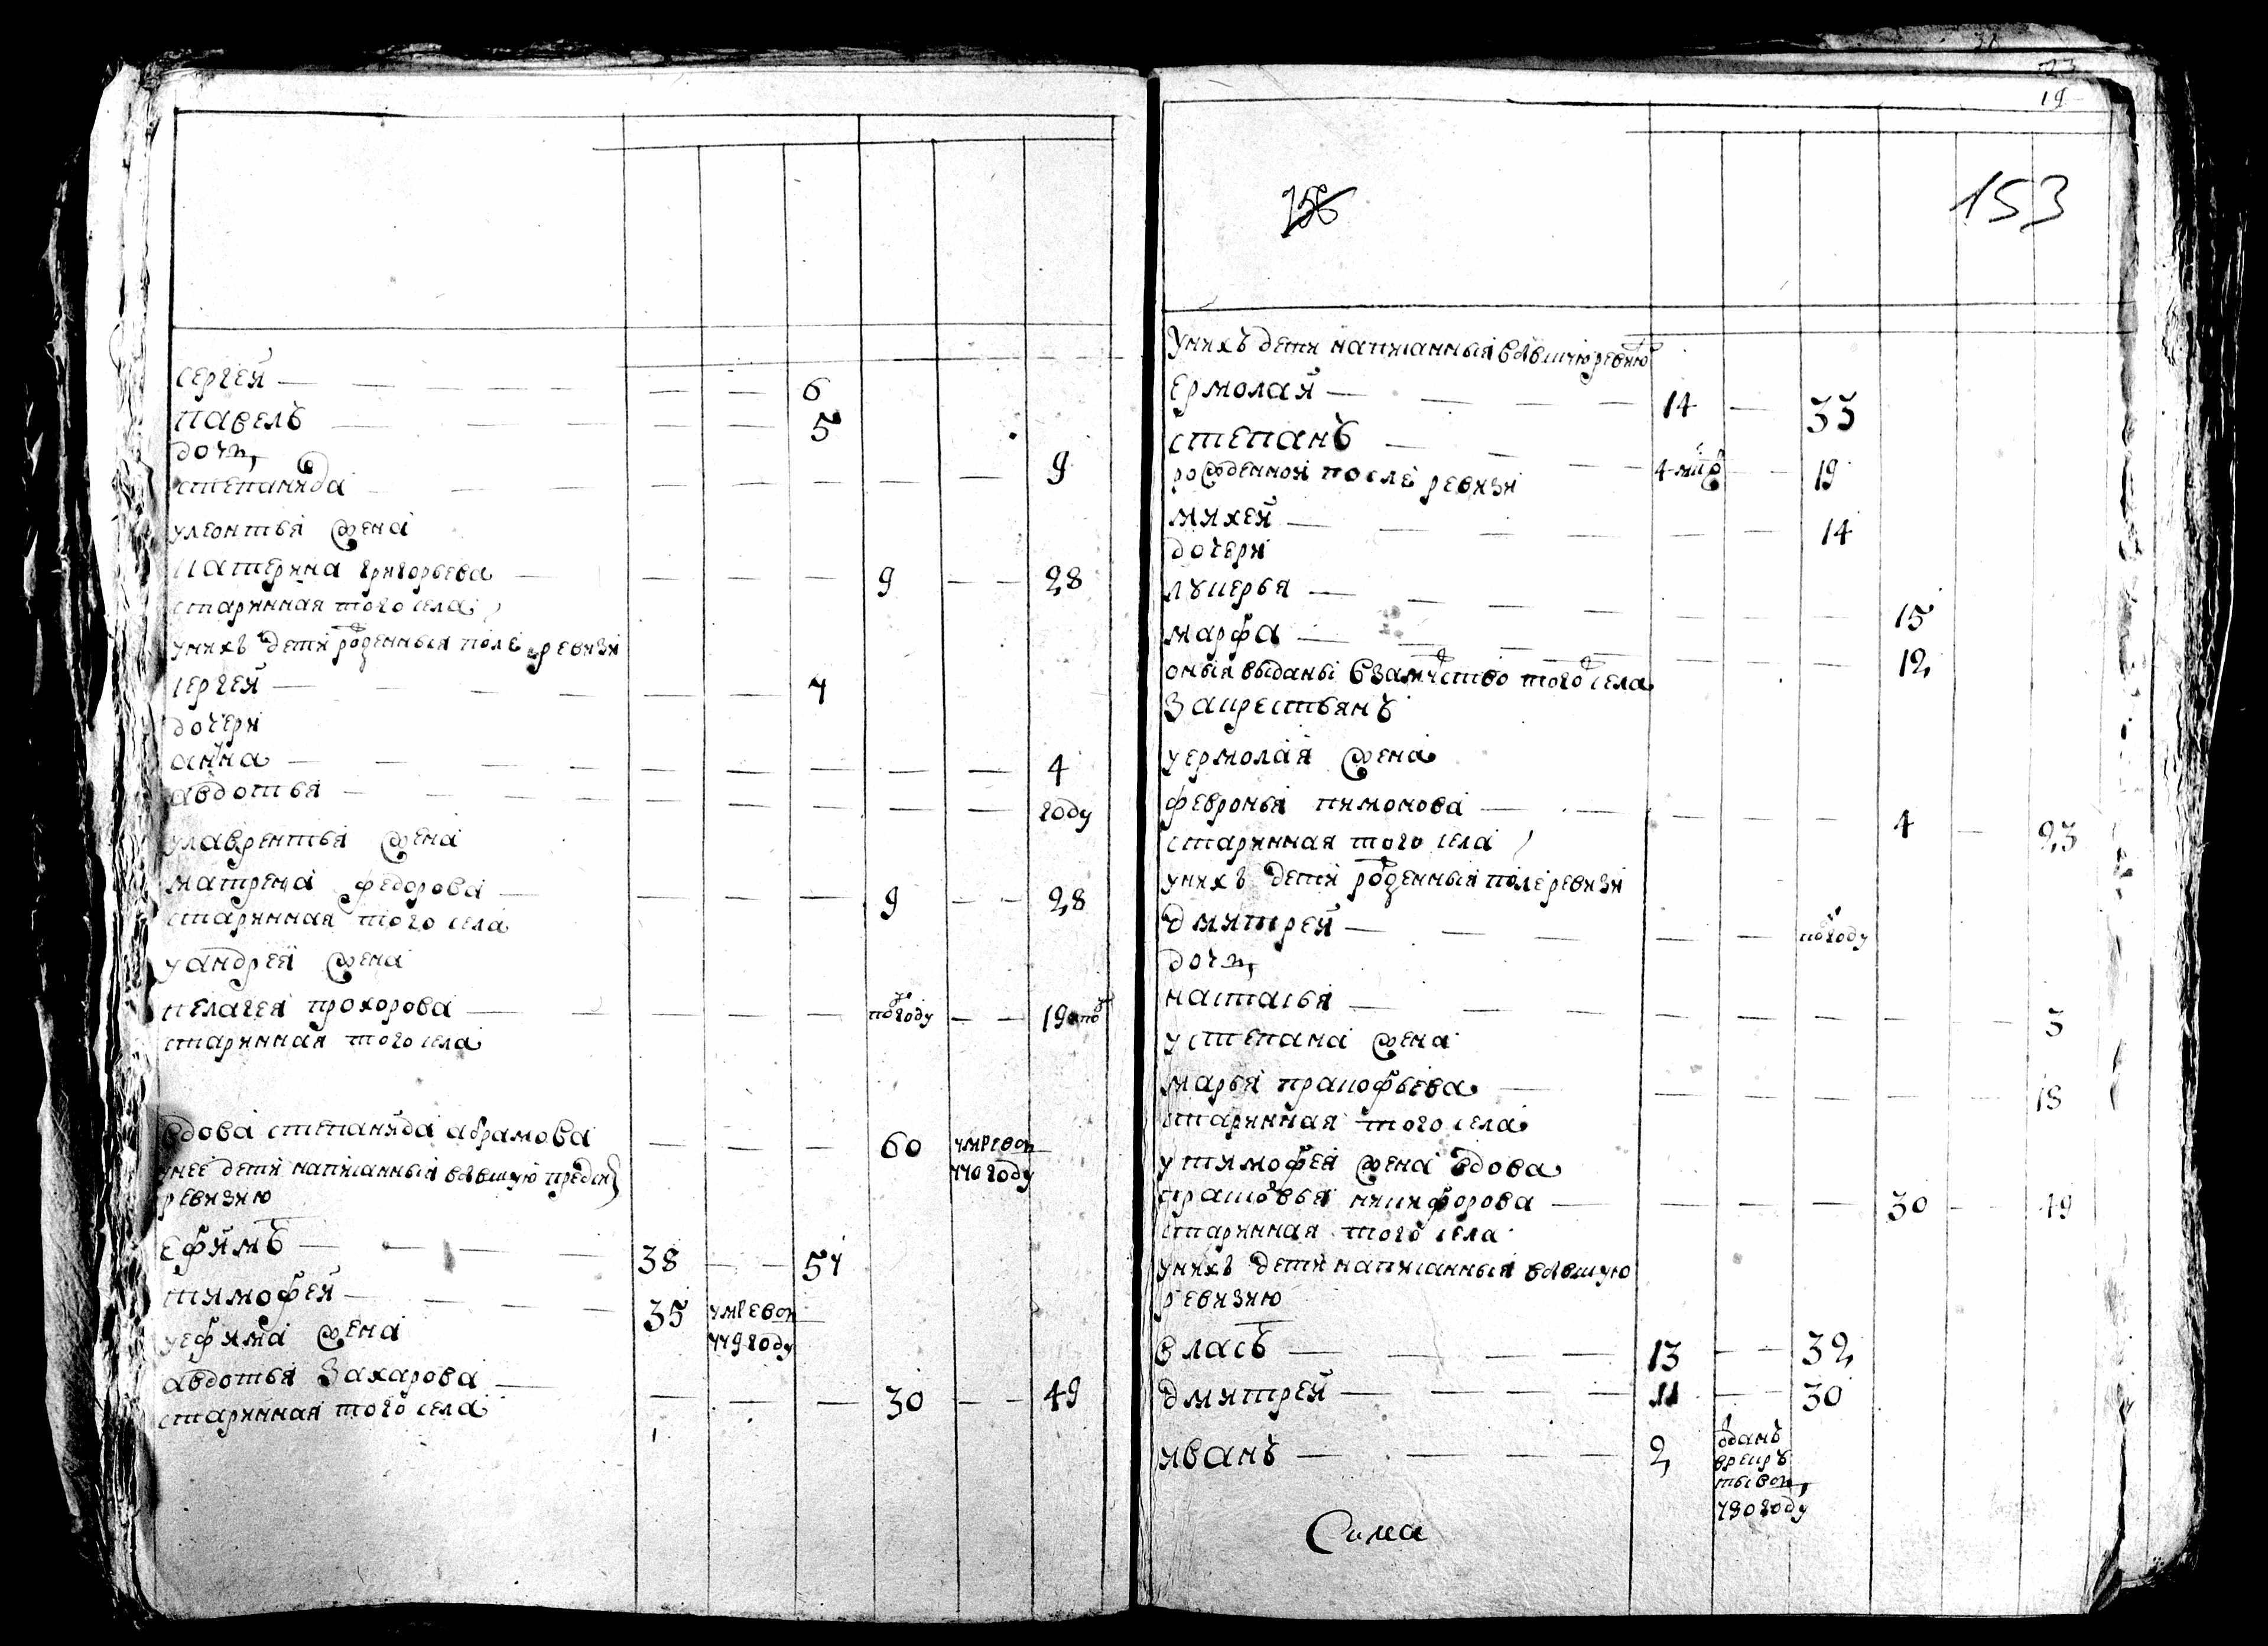 сергей — — — — — — — 6
павелъ — — — — — — 5
дочь
степанида — — — — — — — 9
у леонтья жена
катерина григорьева — — — — 9 — — 28
старинная того села
у нихъ дети рожденныя после ревизи
сергей — — — — — — — 7
дочери
анна — — — — — — — — — 4
авдотья — — — — — — — — — году
у лаврентья жена
матрена федорова — — — — 9 — — 28
старинная того села
у андрея жена
пелагея прохорова — — — — полгоду — — 19 с пол
старинная того села
вдова степанида абрамова — — — 60 умре вов 770 году
у нее дети написанныя в бывшую пред сей
ревизию
ефимъ — — — — 38 — — 57
тимофей — — — — 35 умре вов 779 году
у ефима жена
авдотья захарова — — — — 30 — — 49
старинная того села
19
153
у нихъ дети написанныя в бывшую ревизию
ермолай — — — — 14 — 33
степанъ — — — 4 — 19
рожденной после ревизи
михей — — — — — — 14
дочери
лукерья — — — — — — — 15
марфа — — — — — — — 12
оныя выданы в замужство того села
за крестьянъ
у ермолая жена
февронья пимонова — — — — — 4 — 23
старинная того села
у нихъ дети рожденныя после ревизи
дмитрей — — — — — — полгоду
дочь
настасья — — — — — — — — — 3
у степана жена
марья пракофьева — — — — — — — 18
старинная того села
у тимофея жена вдова
прасковья никифорова — — — — 30 — — 49
старинная того села
у нихъ дети написанныя в бывшую
ревизию
власъ — — — — 13 — — 32
дмитрей — — — — 11 — 30
иванъ — — — — 2 отданъ
в рекру
ты вов
780 году